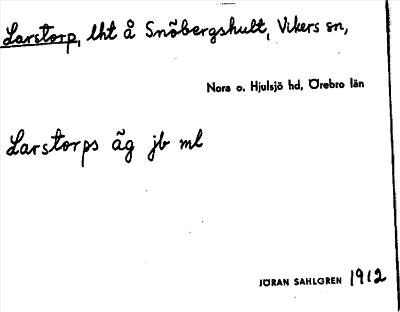 Larstorp, lht å Snöbergshult, Vikers sn,
Nora o. Hjulsjö hd, Örebro län
Larstorps äg jb ml
JÖRAN SAHLGREN 1912